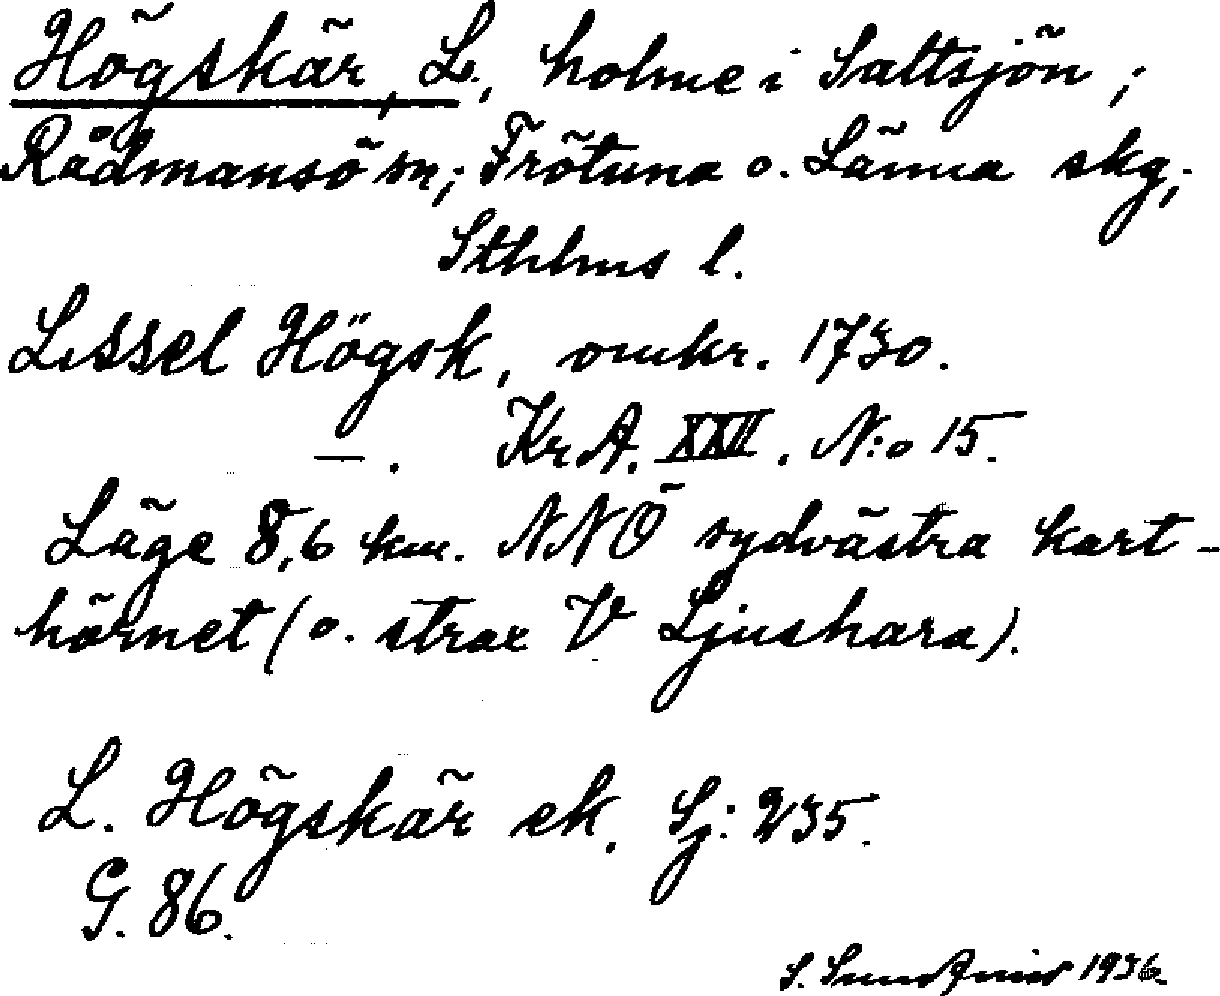 Högskär, L., holme i Saltsjön;
Rådmansö sn; Frötuna o. Länna skg;
Sthlms l.
Lissel Högsk, omkr. 1730.
—. Kr. A. XXII. N:o 15.
Läge 8,6 km. NNÖ sydvästra kart-
hörnet (o. strax V Ljushara).
L. Högskär ek. Sj: 235.
G. 86.
S. 1936.